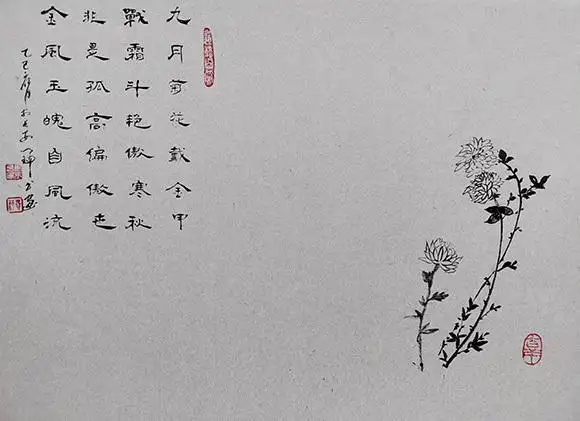 九月菊花戴金甲
戰霜斗艳傲寒秋
非是孤高偏傲世
金風玉魄自風流
乙巳